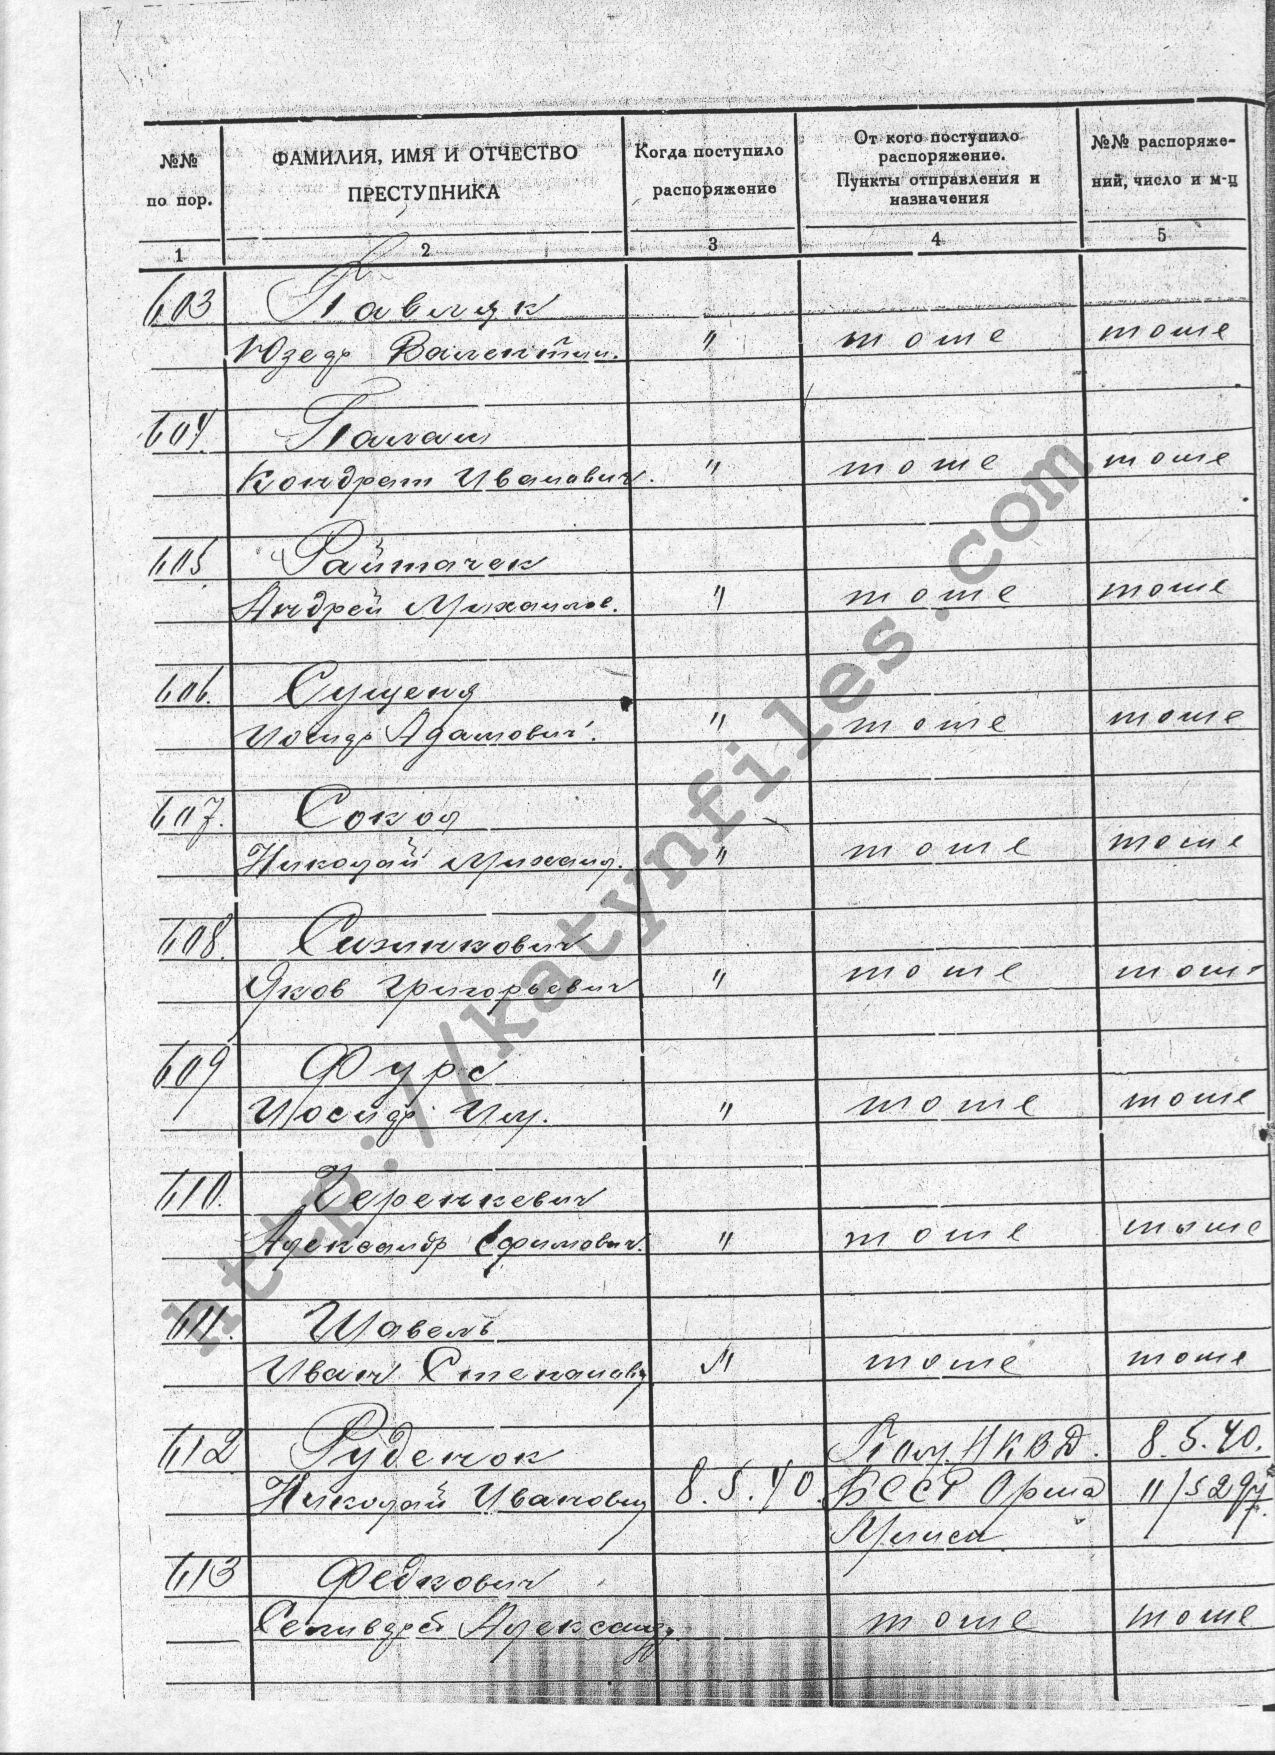 №№ по пор.
ФАМИЛИЯ, ИМЯ И ОТЧЕСТВО ПРЕСТУПНИКА
Когда поступило распоряжение
От кого поступило распоряжение. Пункты отправления и назначения
№№ распоряжений, число и м-ц
1 2 3 4 5
603 Павляк
Юзеф Валентин. " тоже тоже
604. Палаш
Кондрат Иванович. " тоже тоже
605 Райтачек
Андрей Михайлов. " тоже тоже
606. Сущеня
Иосиф Адамович. " тоже тоже
607. Сокол
Николай Михаил. " тоже тоже
608. Сижинкович
Яков Григорьевич " тоже тоже
609 Фурс
Иосиф " тоже тоже
610. Черенкевич
Александр Ефимович. " тоже тоже
611. Шавель
Иван Степанович " тоже тоже
612 Руденок НКВД. 8.5.40.
Николай Иванович 8.5.40. БССР Орша 11/5294
Минск
613 Федкович
Александр тоже тоже
http://katynfiles.com